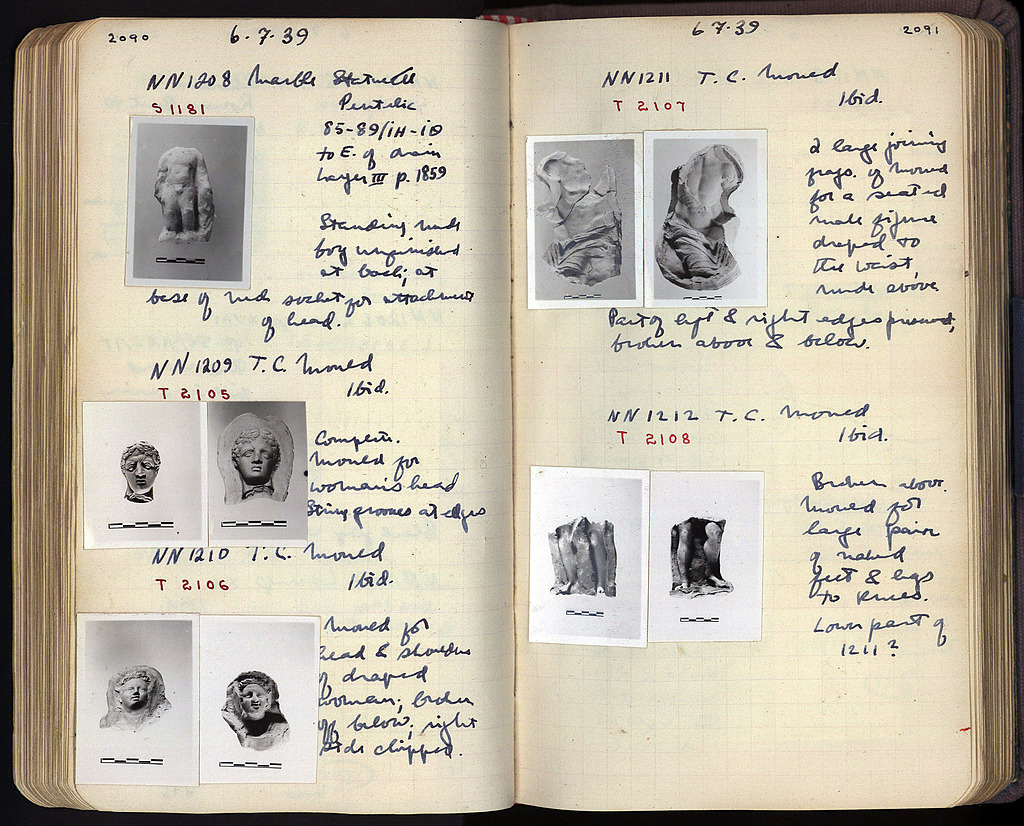 2090
6·7·39
NN1208 Marble Statuette
S 1181
Pentelic
85-89/ΙΗ-ΙΘ
to E. of drain
Layer III p. 1859
Standing nude
boy unfinished
at back; at
base of neck socket for attachment
of head.
NN1209 T.C. Mould
T 2105
Ibid.
Complete.
Mould for
woman's head
String grooves at edges
NN1210 T.C. Mould
T 2106
Ibid.
Mould for
head & shoulders
of draped
woman; broken
off below; right
side chipped.
6·7·39
2091
NN1211 T.C. Mould
T 2107
Ibid.
2 large joining
frags. of mould
for a seated
male figure
draped to
the waist,
nude above
Part of left & right edges preserved,
broken above & below.
NN1212 T.C. Mould
T 2108
Ibid.
Broken above.
Mould for
large pair
of naked
feet & legs
to knees.
Lower part of
1211?